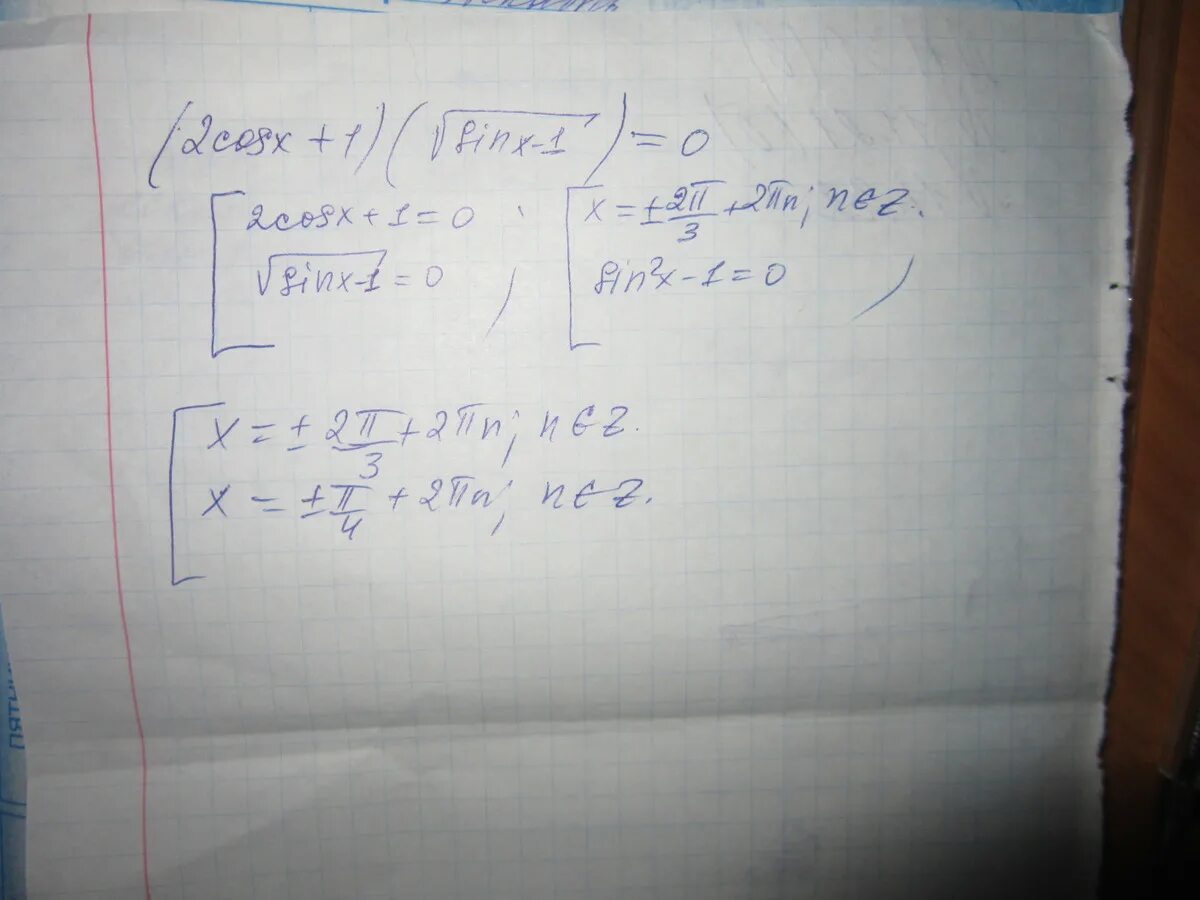 (2cosx + 1)(√(sinx-1)) = 0
2cosx + 1 = 0
√(sinx-1) = 0 ,
x = ± 2π/3 + 2πn; n∈Z.
sin²x - 1 = 0 ,
x = ± 2π/3 + 2πn; n∈Z.
x = ± π/4 + 2πn; n∈Z.